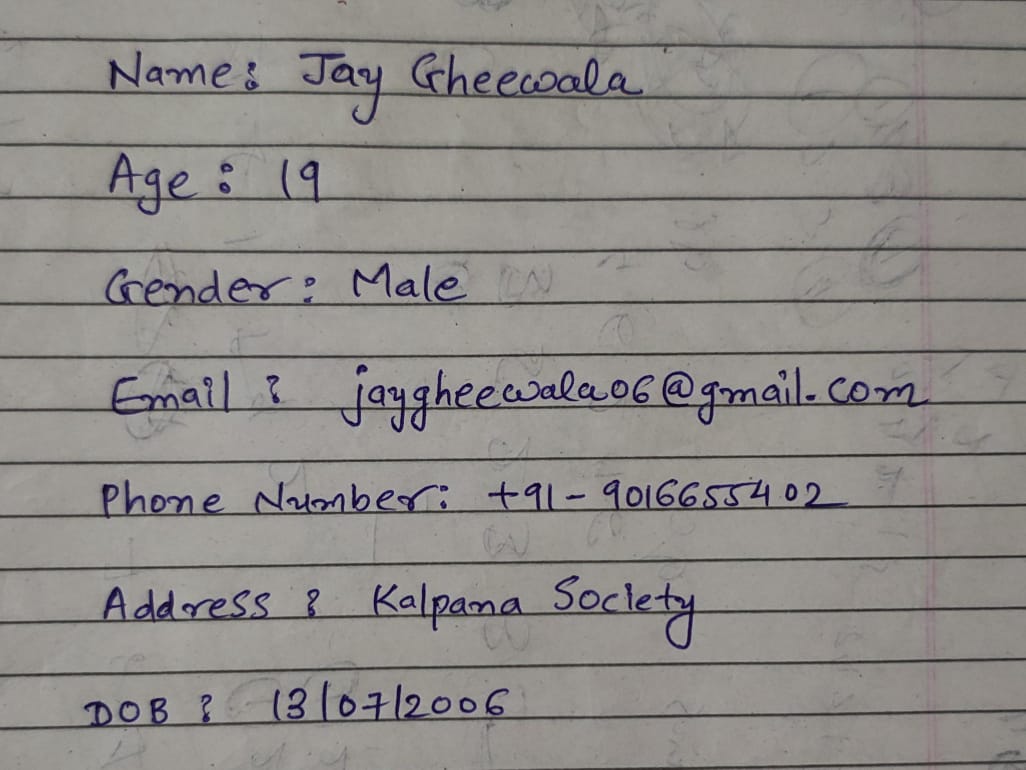 Name: Jay Gheewala
Age: 19
Gender: Male
Email: jaygheewala06@gmail.com
Phone Number: +91-9016655402
Address: Kalpana Society
DOB: 13/07/2006